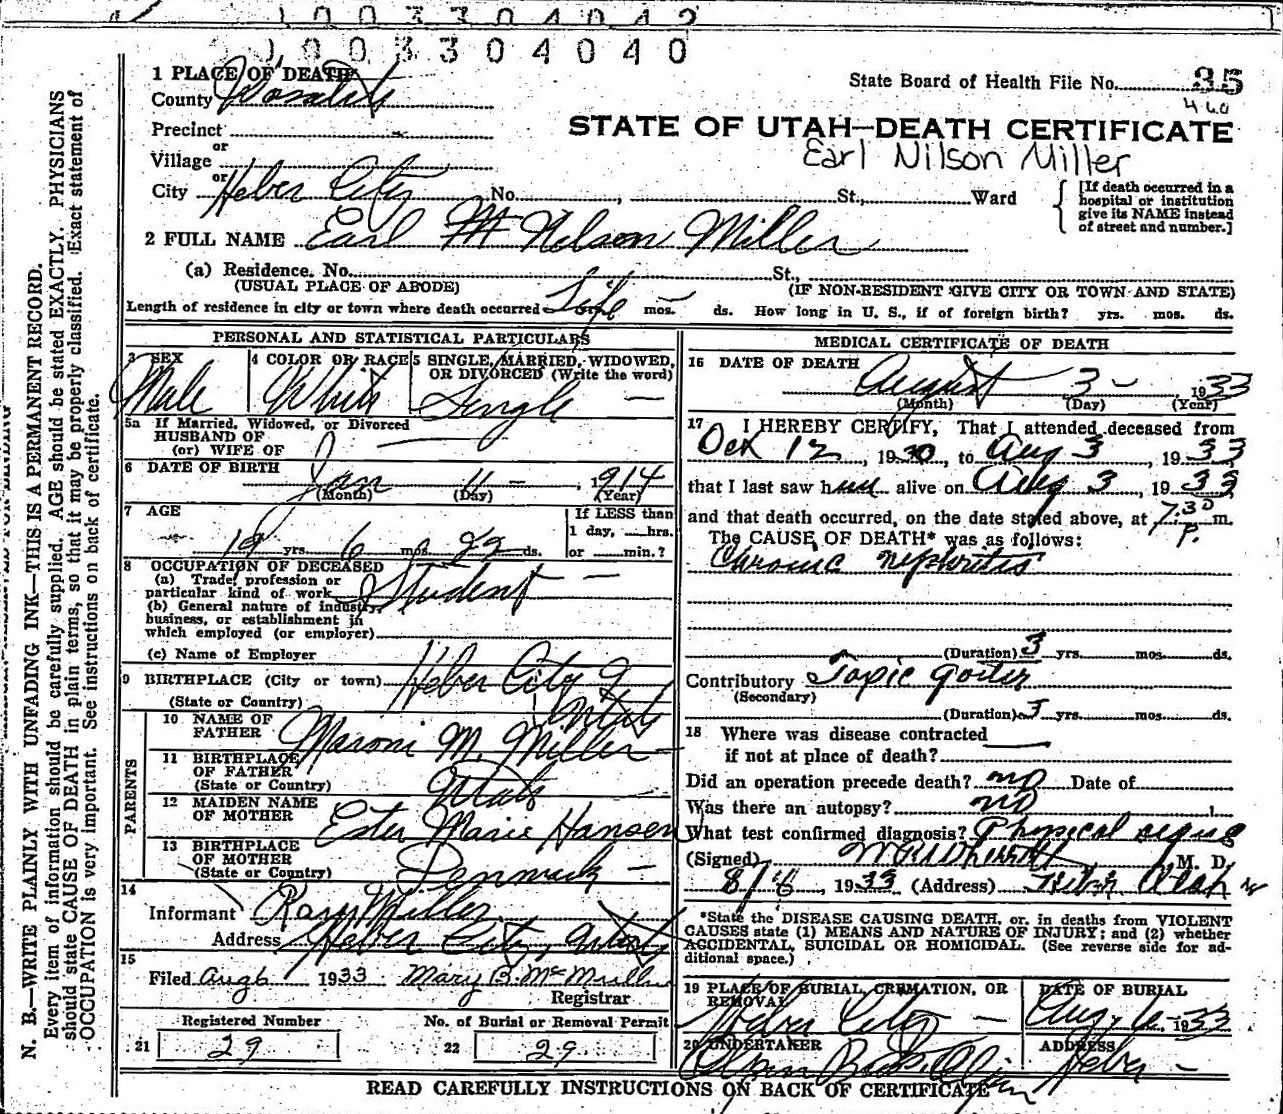 1003304042
1003304040
1 PLACE OF DEATH
County Wasatch
State Board of Health File No. 35
460
Precinct
or
Village
or
City Heber City No. , St., Ward
STATE OF UTAH—DEATH CERTIFICATE
Earl Nilson Miller
[If death occurred in a
hospital or institution
give its NAME instead
of street and number.]
2 FULL NAME Earl M Nelson Miller
(a) Residence. No. St.,
(USUAL PLACE OF ABODE) (IF NON-RESIDENT GIVE CITY OR TOWN AND STATE)
Length of residence in city or town where death occurred Life mos. ds. How long in U. S., if of foreign birth? yrs. mos. ds.
PERSONAL AND STATISTICAL PARTICULARS
3 SEX
Male
4 COLOR OR RACE
White
5 SINGLE, MARRIED, WIDOWED,
OR DIVORCED (Write the word)
Single —
5a If Married, Widowed, or Divorced
HUSBAND OF
(or) WIFE OF
6 DATE OF BIRTH
Jan 11 — , 1914
(Month) (Day) (Year)
7 AGE
19 yrs. 6 mos. 22 ds.
If LESS than
1 day, hrs.
or min.?
8 OCCUPATION OF DECEASED
(a) Trade, profession or
particular kind of work Student —
(b) General nature of industry,
business, or establishment in
which employed (or employer)
(c) Name of Employer
9 BIRTHPLACE (City or town) Heber City
(State or Country) Utah
PARENTS
10 NAME OF
FATHER Moroni M. Miller
11 BIRTHPLACE
OF FATHER
(State or Country) Utah
12 MAIDEN NAME
OF MOTHER Ester Marie Hansen
13 BIRTHPLACE
OF MOTHER
(State or Country) Denmark —
14
Informant Ray Miller
Address Heber City, Utah
15
Filed Aug 6 1933 Mary B. McMullin
Registrar
Registered Number
21 29
No. of Burial or Removal Permit
22 29
MEDICAL CERTIFICATE OF DEATH
16 DATE OF DEATH
August 3 — 1933
(Month) (Day) (Year)
17 I HEREBY CERTIFY, That I attended deceased from
Oct 12, 1930, to Aug 3, 1933
that I last saw him alive on Aug 3, 1933
and that death occurred, on the date stated above, at 7:30 P. m.
The CAUSE OF DEATH* was as follows:
Chronic Nephritis
(Duration) 3 yrs. mos. ds.
Contributory Toxic goiter
(Secondary)
(Duration) 3 yrs. mos. ds.
18 Where was disease contracted
if not at place of death?
Did an operation precede death? no Date of
Was there an autopsy? no
What test confirmed diagnosis? Physical signs
(Signed) , M. D.
8/6, 1933 (Address) Heber Utah
*State the DISEASE CAUSING DEATH, or, in deaths from VIOLENT
CAUSES state (1) MEANS AND NATURE OF INJURY; and (2) whether
ACCIDENTAL, SUICIDAL OR HOMICIDAL. (See reverse side for ad-
ditional space.)
19 PLACE OF BURIAL, CREMATION, OR
REMOVAL
Heber City —
DATE OF BURIAL
Aug. 6 — 1933
20 UNDERTAKER
ADDRESS
Heber —
READ CAREFULLY INSTRUCTIONS ON BACK OF CERTIFICATE
N. B.—WRITE PLAINLY WITH UNFADING INK—THIS IS A PERMANENT RECORD.
Every item of information should be carefully supplied. AGE should be stated EXACTLY. PHYSICIANS
should state CAUSE OF DEATH in plain terms, so that it may be properly classified. Exact statement of
OCCUPATION is very important. See instructions on back of certificate.